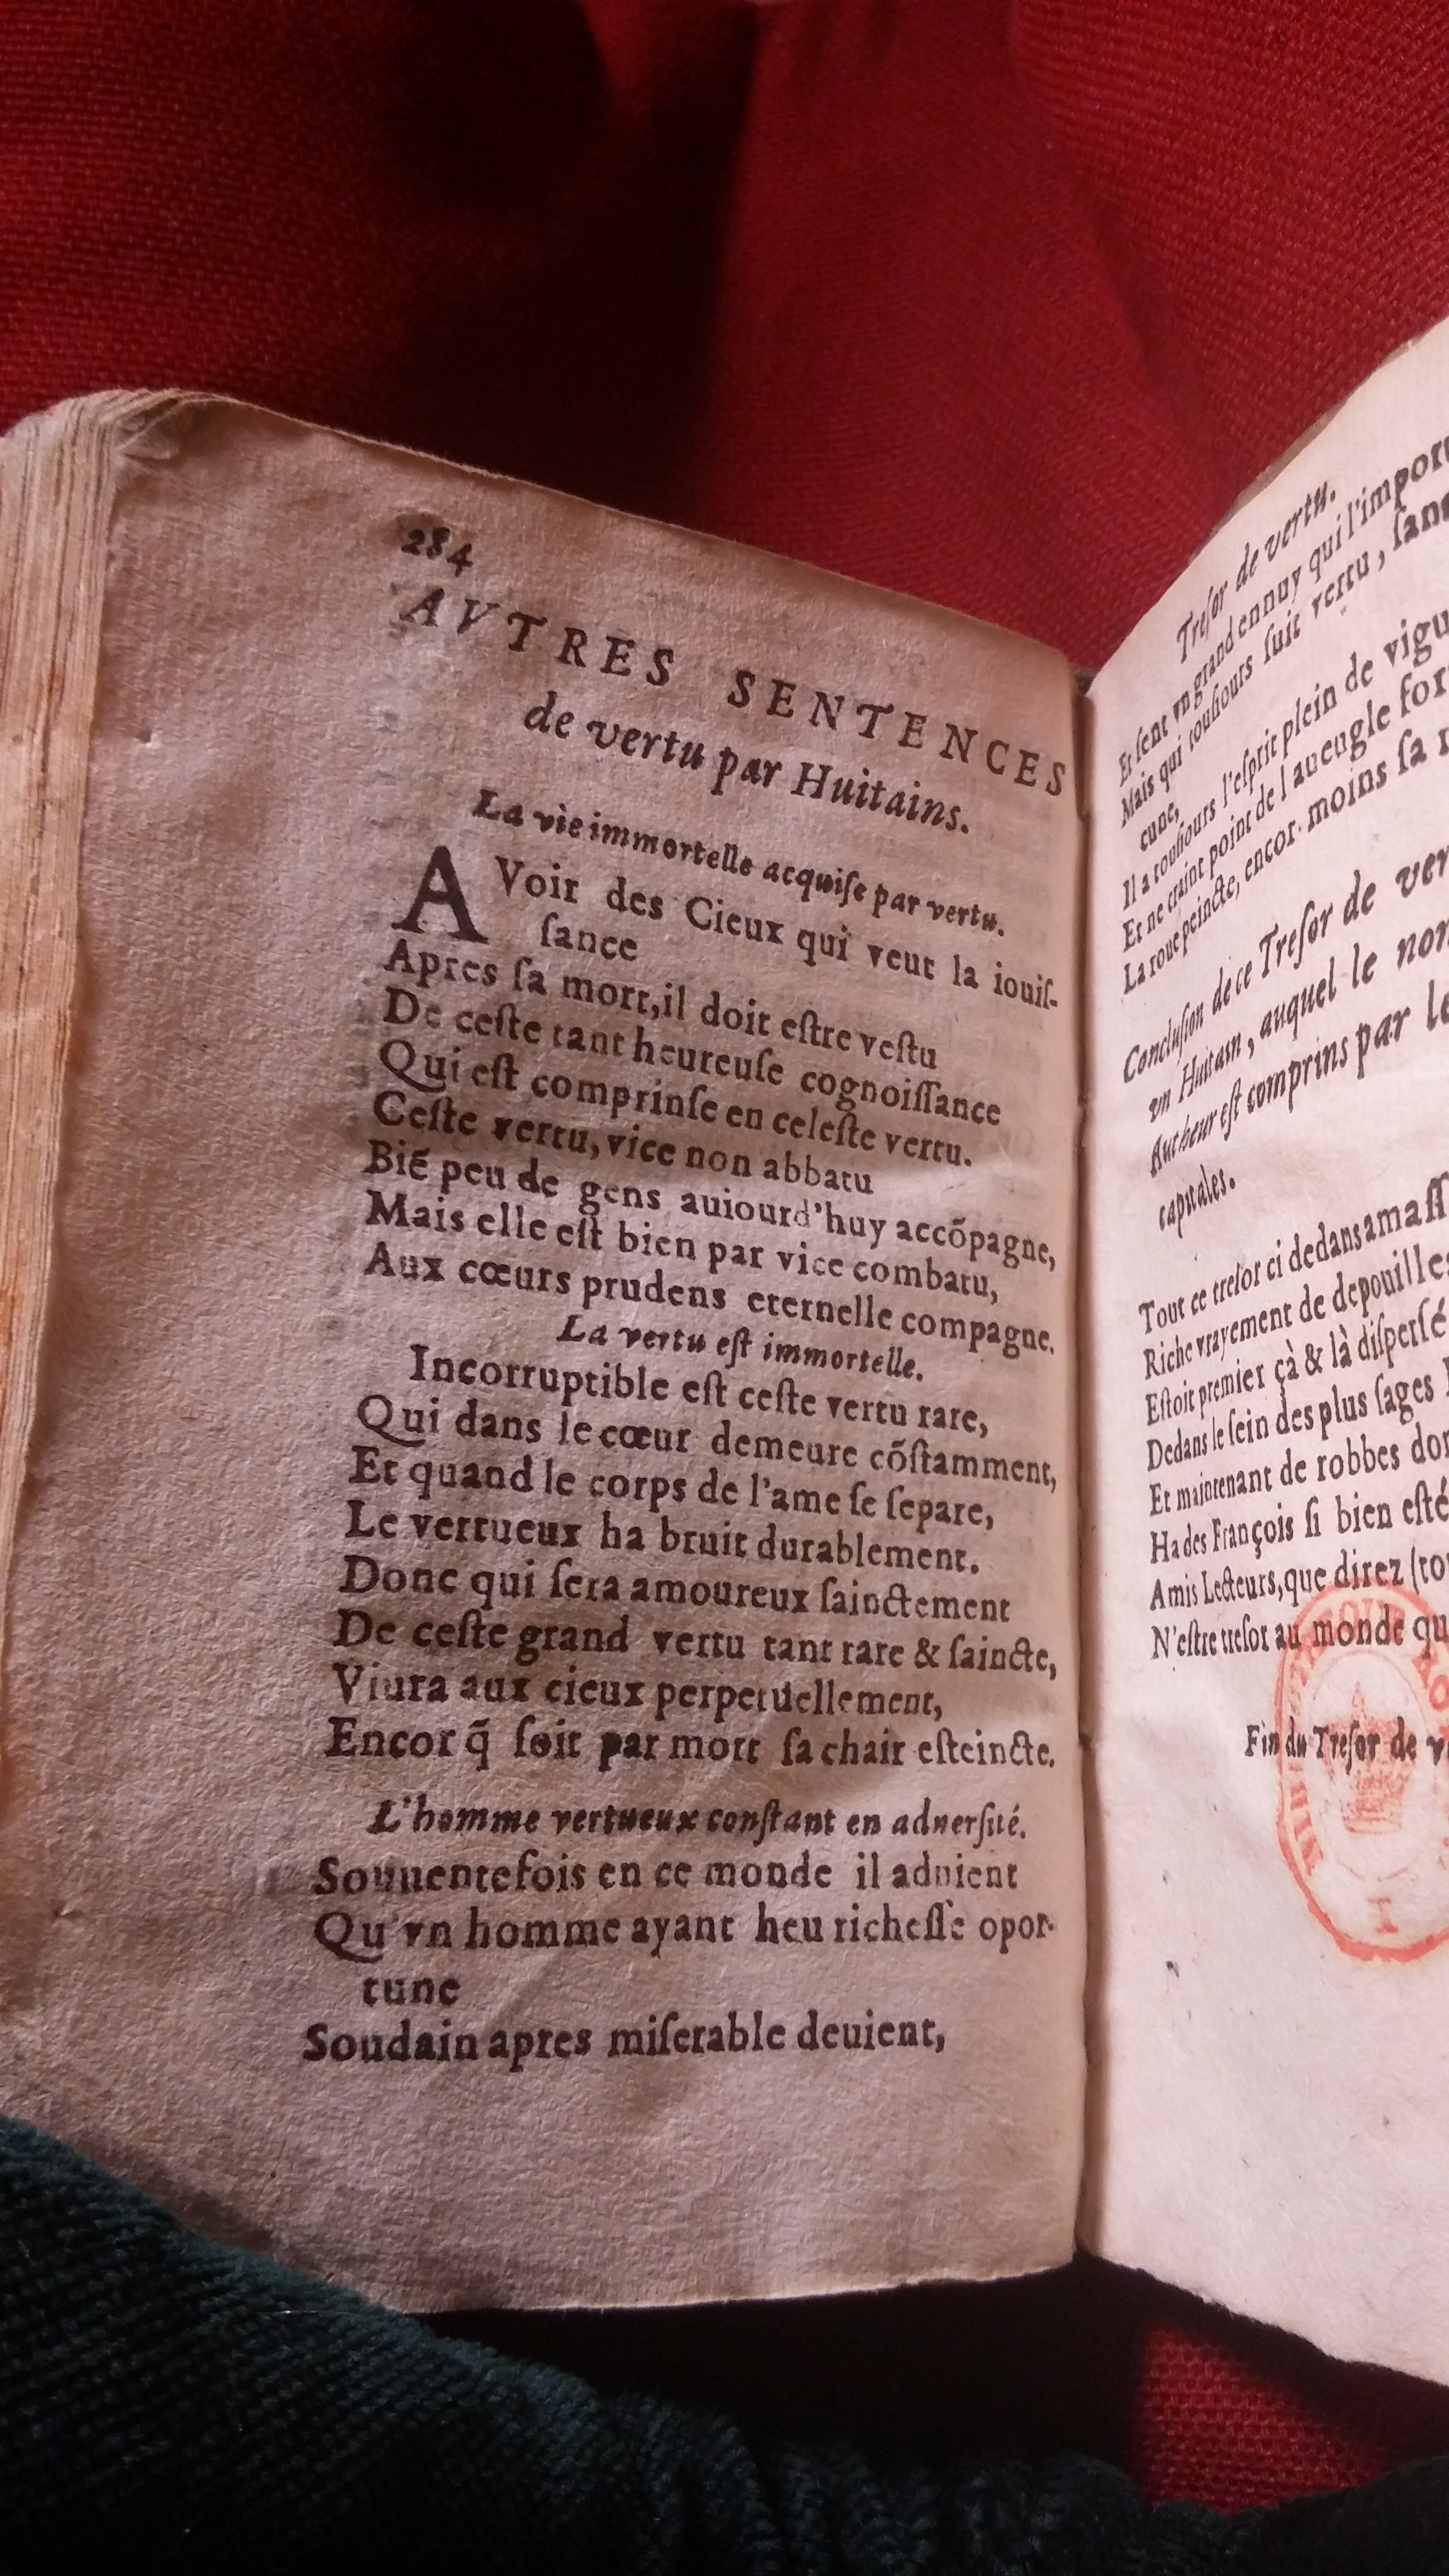 284
AVTRES SENTENCES
de vertu par Huitains.
La vie immortelle acquiſe par vertu.
AVoir des Cieux qui veut la iouiſ-
ſance
Apres ſa mort, il doit eſtre veſtu
De ceſte tant heureuſe cognoiſſance
Qui eſt comprinſe en celeſte vertu.
Ceſte vertu, vice non abbatu
Biē peu de gens auiourd'huy accōpagne,
Mais elle eſt bien par vice combatu,
Aux cœurs prudens eternelle compagne.
La vertu eſt immortelle.
Incorruptible eſt ceſte vertu rare,
Qui dans le cœur demeure cōſtamment,
Et quand le corps de l'ame ſe ſepare,
Le vertueux ha bruit durablement.
Donc qui ſera amoureux ſainctement
De ceſte grand vertu tant rare & ſaincte,
Viura aux cieux perpetuellement,
Encor q̃ ſoit par mort ſa chair eſteincte.
L'homme vertueux conſtant en aduerſité.
Souuentefois en ce monde il aduient
Qu'vn homme ayant heu richeſſe opor-
tune
Soudain apres miſerable deuient,
Treſor de vertu.
Et ſent vn grand ennuy qui l'import
Mais qui touſiours ſuit vertu, ſans
cune,
Il a touſiours l'eſprit plein de vigu
Et ne craint point de l'aueugle for
La roue peincte, encor moins ſa r
Concluſion de ce Treſor de ver
vn Huitain, auquel le nom
Autheur eſt comprins par le
capitales.
Tout ce treſor ci dedans amaſſ
Riche vrayement de depouilles
Eſtoit premier çà & là diſperſé
Dedans le ſein des plus ſages
Et maintenant de robbes dor
Ha des François ſi bien eſté
Amis Lecteurs, que direz (to
N'eſtre treſor au monde qu
Fin du Treſor de v